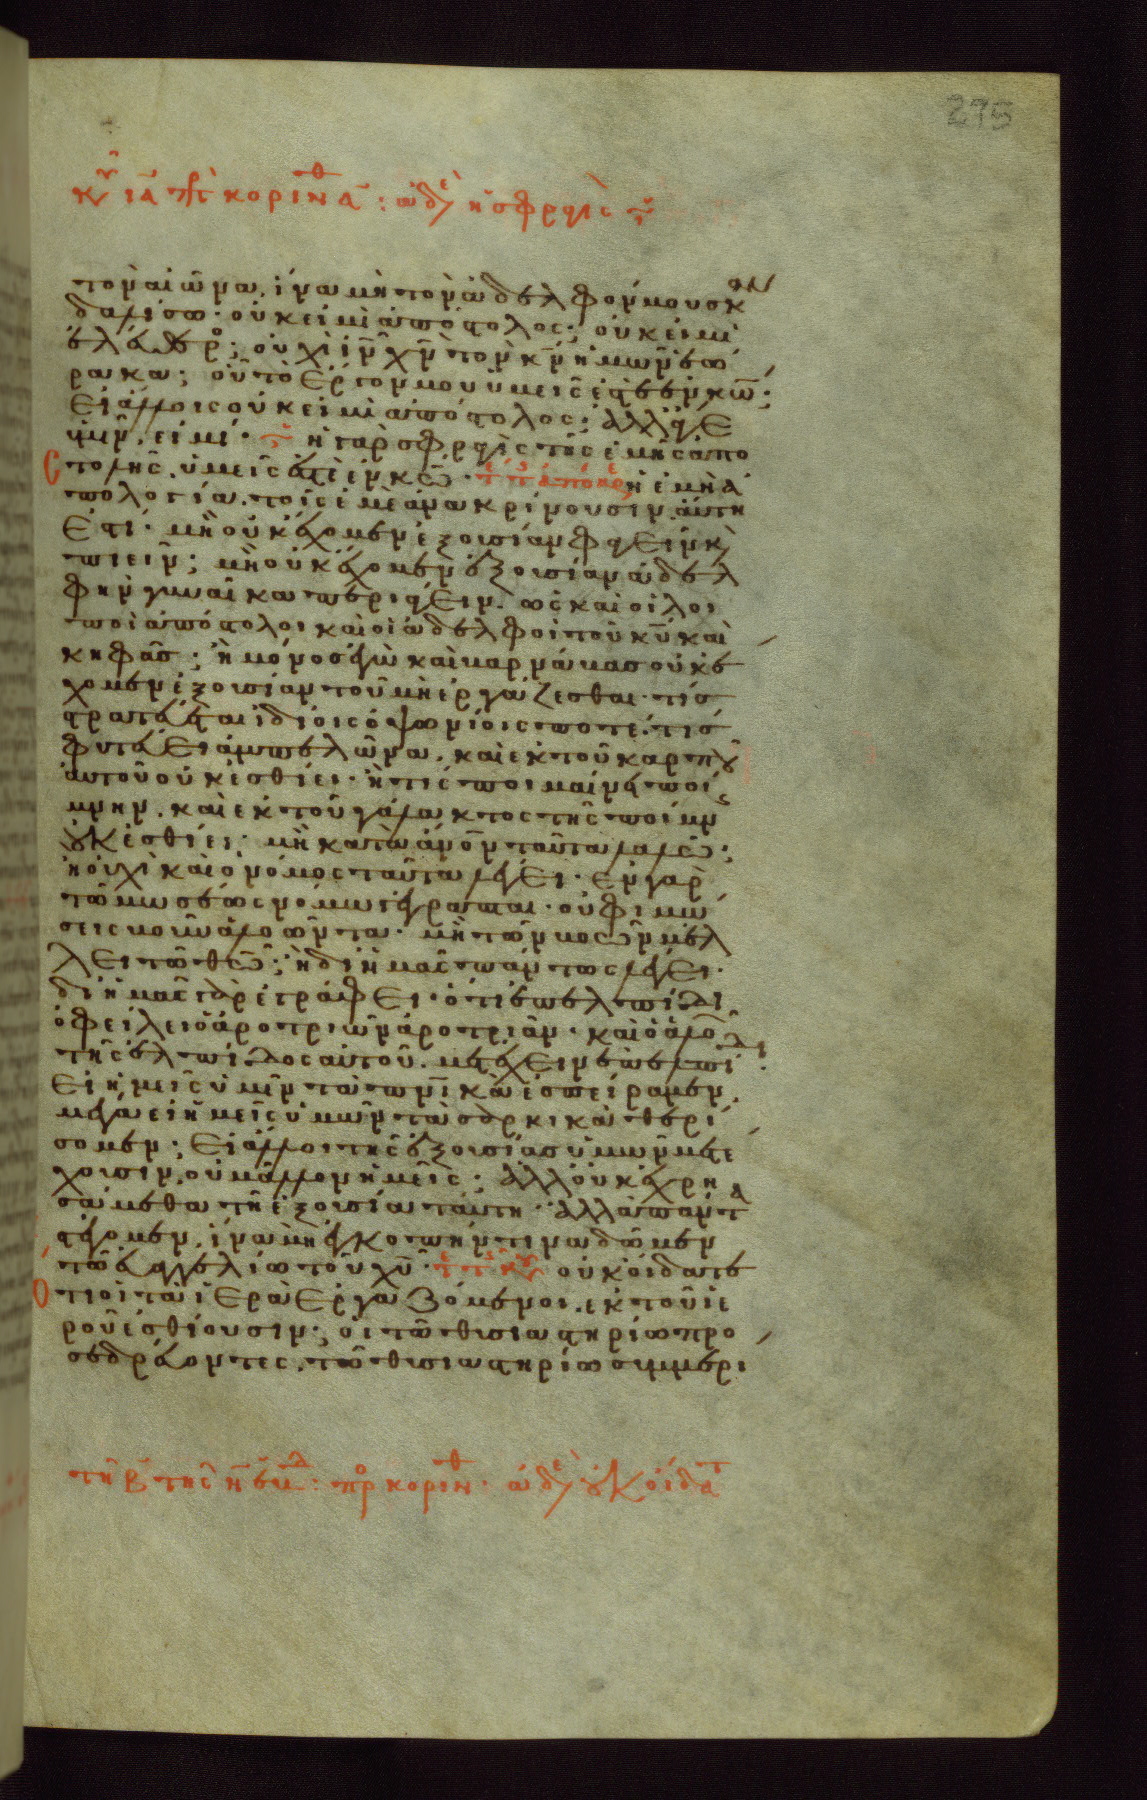 275
κυ ια προς κορινθ α : αδε η σφραγις της
τον αιωνα. ίνα μὴ τὸν ἀδελφόν μου σκαν
δαλίσω· οὐκ εἰμὶ ἀπόστολος; οὐκ εἰμὶ
ἐλεύθερος; οὐχὶ ιν χν τὸν κν ἡμῶν ἑώ
ρακα; οὐ τὸ ἔργον μου ὑμεῖς ἐστε ἐν κω;
εἰ ἄλλοις οὐκ εἰμὶ ἀπόστολος; ἀλλά γε
ὑμῖν εἰμί· ἡ γὰρ σφραγὶς τῆς ἐμῆς ἀπο
στολῆς, ὑμεῖς ἐστὲ ἐν κω· ἡ ἐμὴ ἀ
πολογία τοῖς ἐμὲ ἀνακρίνουσιν αὕτη
ἐστί· μὴ οὐκ ἔχομεν ἐξουσίαν φαγεῖν καὶ
πιεῖν; μὴ οὐκ ἔχομεν ἐξουσίαν ἀδελ
φὴν γυναῖκα περιάγειν. ὡς καὶ οἱ λοι
ποὶ ἀπόστολοι καὶ οἱ ἀδελφοὶ τοῦ κυ καὶ
κηφᾶς; ἢ μόνος ἐγὼ καὶ βαρνάβας οὐκ ἔ
χομεν ἐξουσίαν τοῦ μὴ ἐργάζεσθαι· τίς
στρατεύεται ἰδίοις ὀψωνίοις ποτέ· τίς
φυτεύει ἀμπελῶνα, καὶ ἐκ τοῦ καρποῦ
αὐτοῦ οὐκ ἐσθίει· ἢ τίς ποιμαίνει ποί
μνην, καὶ ἐκ τοῦ γάλακτος τῆς ποίμν
οὐκ ἐσθίει· μὴ κατὰ ἄνον ταῦτα λαλῶ;
ἢ οὐχὶ καὶ ὁ νόμος ταῦτα λέγει· ἐν γὰρ
τῶ μωσέως νόμω γέγραπται· οὐ φιμώ
σεις βοῦν ἀλοῶντα· μὴ τῶν βοῶν μέλ
λει τῶ θω; ἢ δι ἡμᾶς πάντως λέγει·
δι ἡμᾶς γὰρ ἐγράφει· ὅτι ἐπ ἐλπίδι
ὀφείλει ὁ ἀροτριῶν ἀροτριᾶν· καὶ ὁ ἀλοῶν
τῆς ἐλπίδος αὐτοῦ μετέχειν ἐπ ἐλπίδι.
εἰ ἡμεῖς ὑμῖν τὰ πνικὰ ἐσπείραμεν,
μέγα εἰ ἡμεῖς ὑμῶν τὰ σαρκικὰ θερί
σομεν; εἰ ἄλλοι τῆς ἐξουσίας ὑμῶν μετέ
χουσιν, οὐ μᾶλλον ἡμεῖς; ἀλλ οὐκ ἐχρη
σάμεθα τῆ ἐξουσία ταύτη· ἀλλὰ πάντα
στέγομεν, ἵνα μὴ ἐγκοπήν τινα δῶμεν
τῶ εὐαγγελίω τοῦ χυ· οὐκ οἴδατε
ὅτι οἱ τὰ ἱερὰ ἐργαζόμενοι, ἐκ τοῦ ἱε
ροῦ ἐσθίουσιν; οἱ τῶ θυσιαστηρίω προ
σεδρεύοντες, τῶ θυσιαστηρίω συμμερί
τη β της η εβδ : προς κορινθ · αδε οὐκ οἴδατ